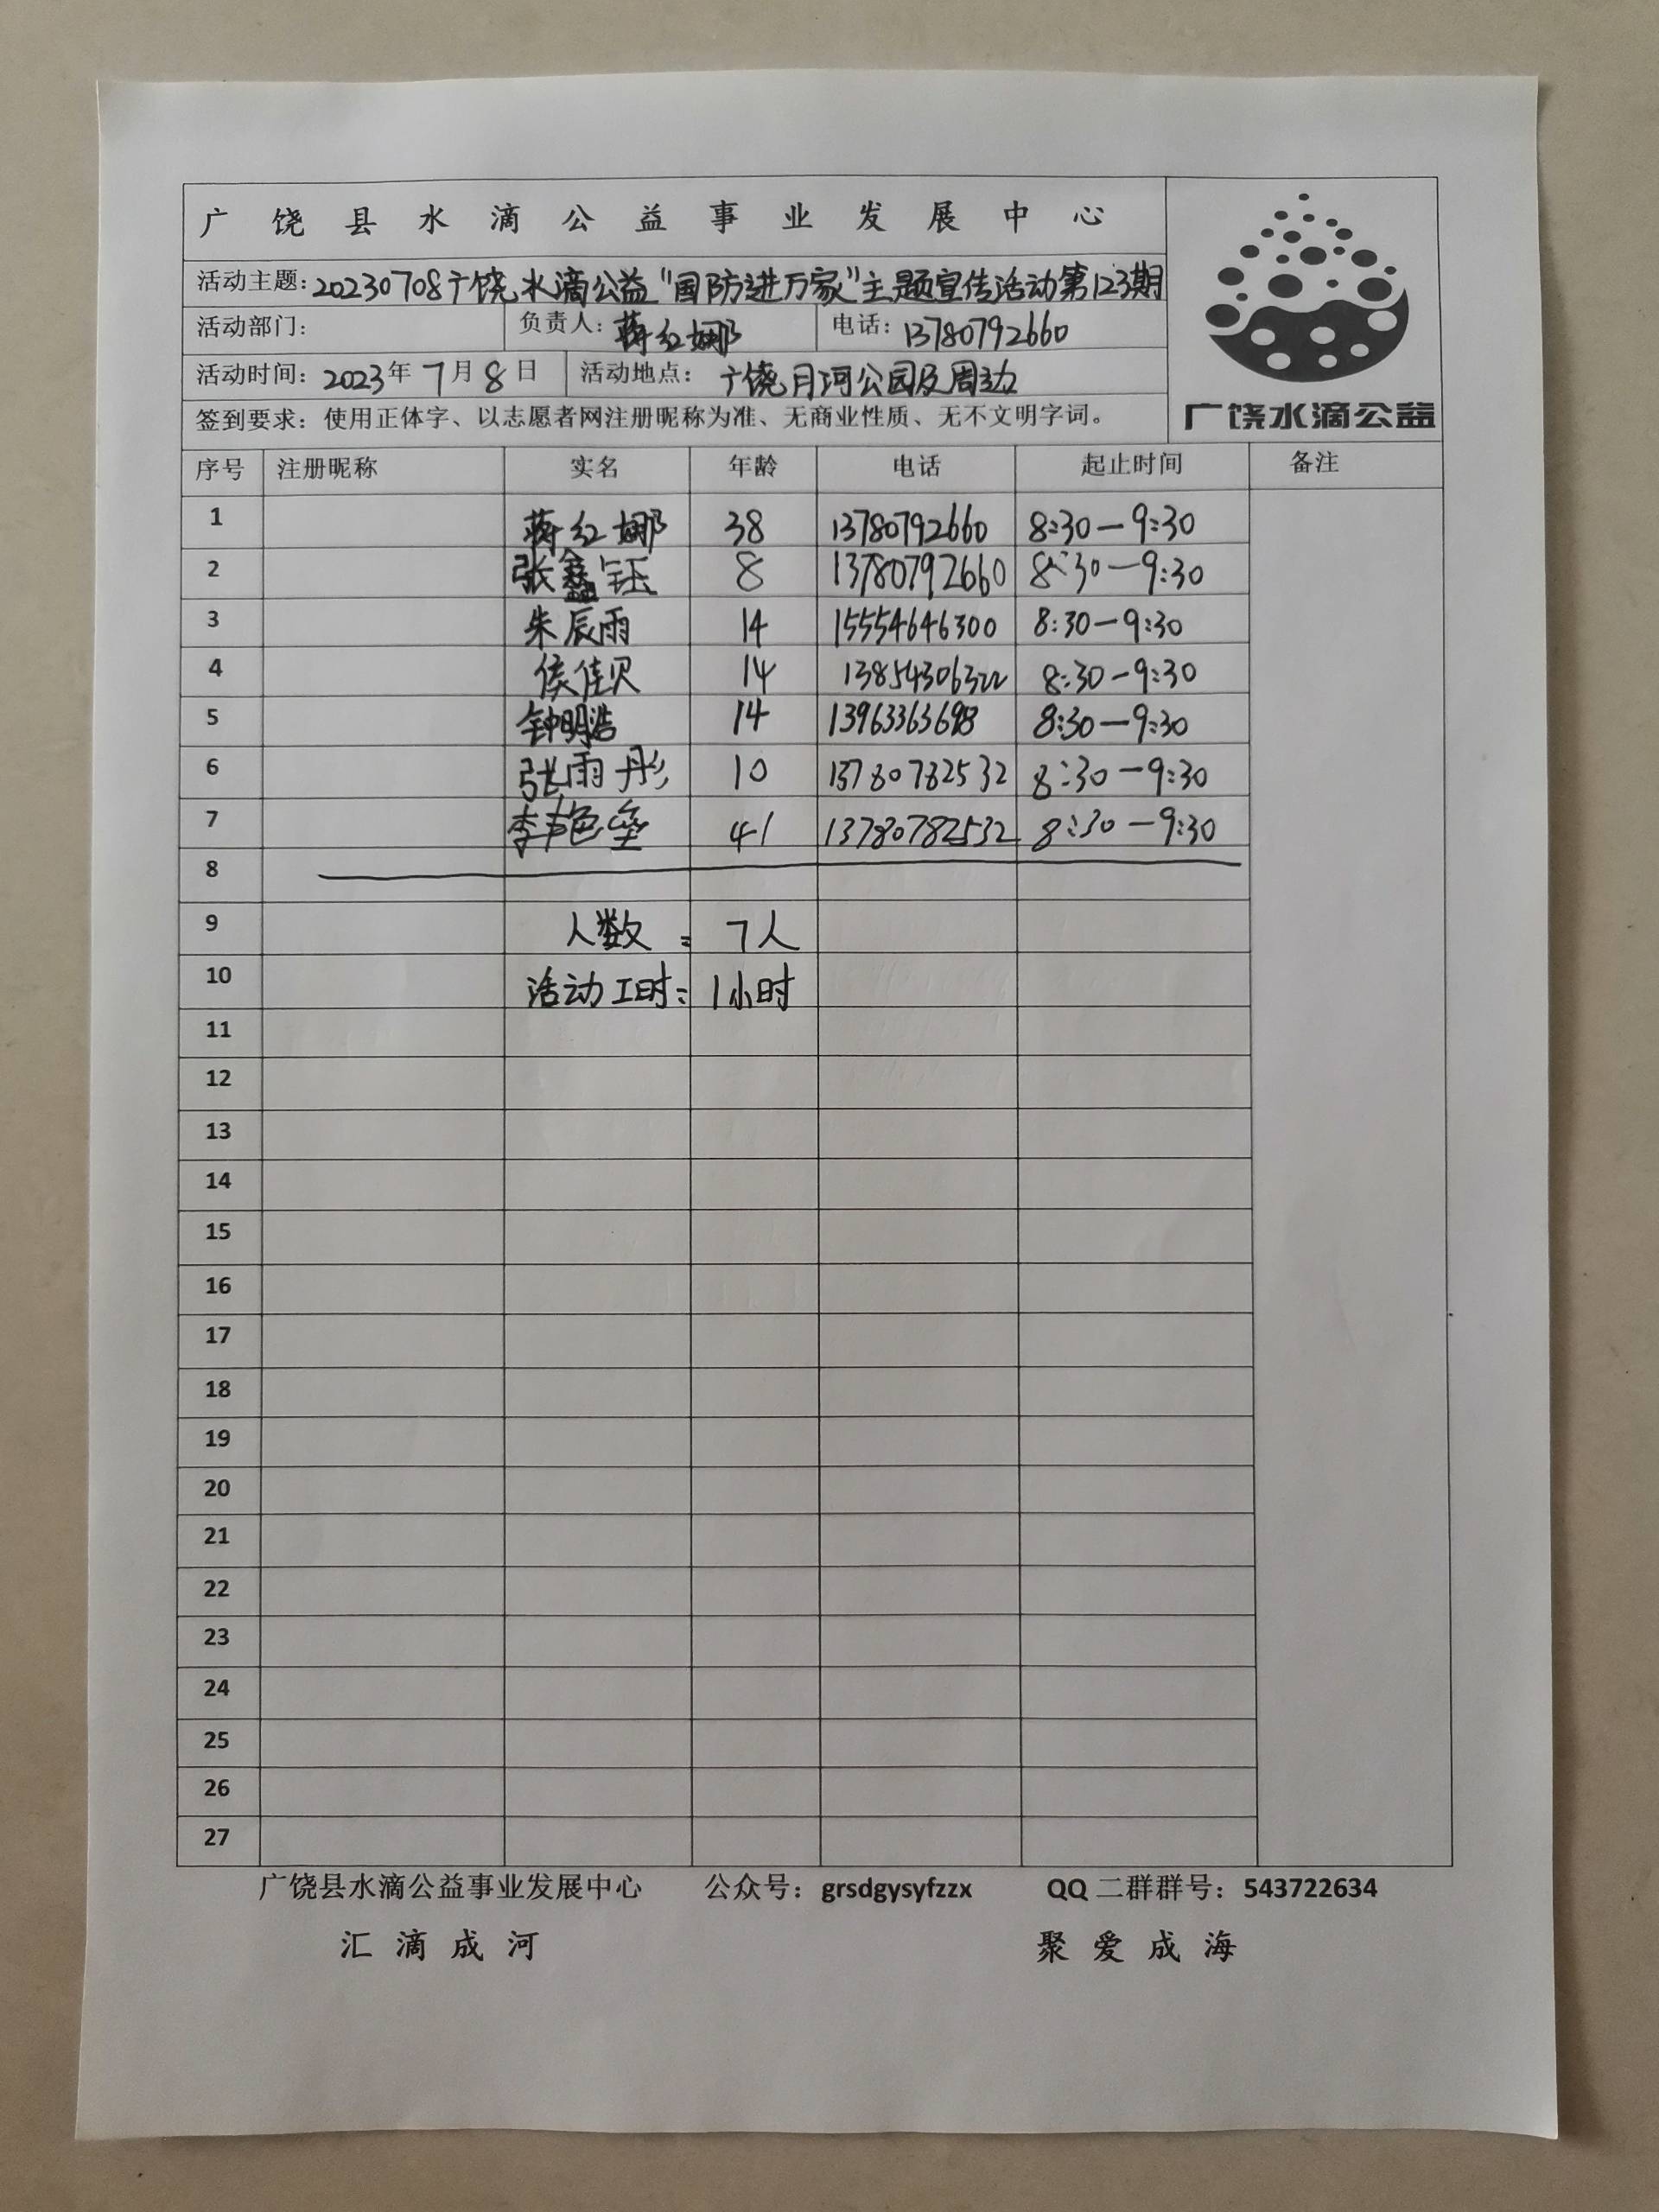 广饶县水滴公益事业发展中心
活动主题:20230708广饶水滴公益"国防进万家"主题宣传活动第123期
活动部门: 负责人:蒋红娜 电话:13780792660
活动时间:2023年7月8日 活动地点:广饶月河公园及周边
广饶水滴公益
签到要求:使用正体字、以志愿者网注册昵称为准、无商业性质、无不文明字词。
序号 注册昵称 实名 年龄 电话 起止时间 备注
1 蒋红娜 38 13780792660 8:30—9:30
2 张鑫钰 8 13780792660 8:30—9:30
3 朱辰雨 14 15554646300 8:30—9:30
4 侯佳贝 14 13854306322 8:30—9:30
5 钟明浩 14 13963363698 8:30—9:30
6 张雨彤 10 13780782532 8:30—9:30
7 李艳 41 13780782532 8:30—9:30
8
9 人数: 7人
10 活动工时: 1小时
11
12
13
14
15
16
17
18
19
20
21
22
23
24
25
26
27
广饶县水滴公益事业发展中心 公众号:grsdgysyfzzx QQ二群群号:543722634
汇滴成河 聚爱成海